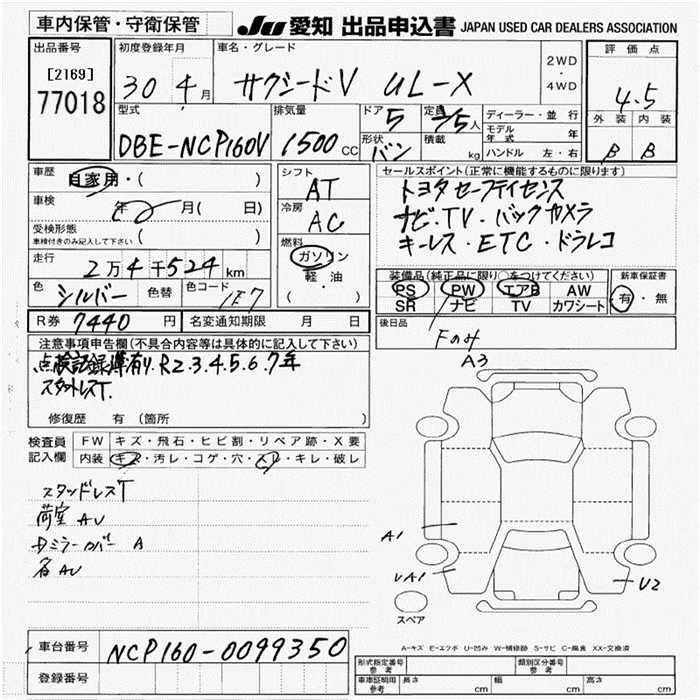 車内保管・守衛保管
JU 愛知 出品申込書 JAPAN USED CAR DEALERS ASSOCIATION
出品番号
[2169]
77018
初度登録年月
30 4月
車名・グレード
サクシードV UL-X
2WD
・
4WD
評価点
4.5
外装 内装
B B
型式
DBE-NCP160V
排気量
1500 CC
ドア 5
定員 2/5人
形状 バン
積載 kg
ディーラー・並行
モデル年式 年
ハンドル 左・右
車歴
自家用・( )
車検
年 月( 日)
受検形態
車検付きのみ記入して下さい ( )
走行
2万4千524km
色 シルバー 色替 色コード 1E7
シフト
AT
冷房
AC
燃料
ガソリン
軽・油
( )
セールスポイント(正常に機能するものに限ります)
トヨタセーフティセンス
ナビ・TV・バックカメラ
キーレス・ETC・ドラレコ
装備品(純正品に限り○をつけてください)
PS PW エアB AW
SR ナビ TV カワシート
新車保証書
有・無
R券 7440 円 名変通知期限 月 日
後日品
Fのみ
注意事項申告欄(不具合内容等は具体的に記入して下さい)
点検記録簿有り R2.3.4.5.6.7年
スタットレスT.
修復歴 有(箇所 )
検査員
記入欄
FW キズ・飛石・ヒビ割・リペア跡・X要
内装 キズ・汚レ・コゲ・穴・スレ・キレ・破レ
スタッドレスT
荷室 AU
ミラーカバー A
各AU
A3
A1
UA1
U2
スペア
A-キズ E-エクボ U-凹み W-補修跡 S-サビ C-腐食 XX-交換済
車台番号 NCP160-0099350
登録番号
形式指定番号
参考
類別区分番号
参考
車庫証明用
参考
長さ cm 幅 cm 高さ cm